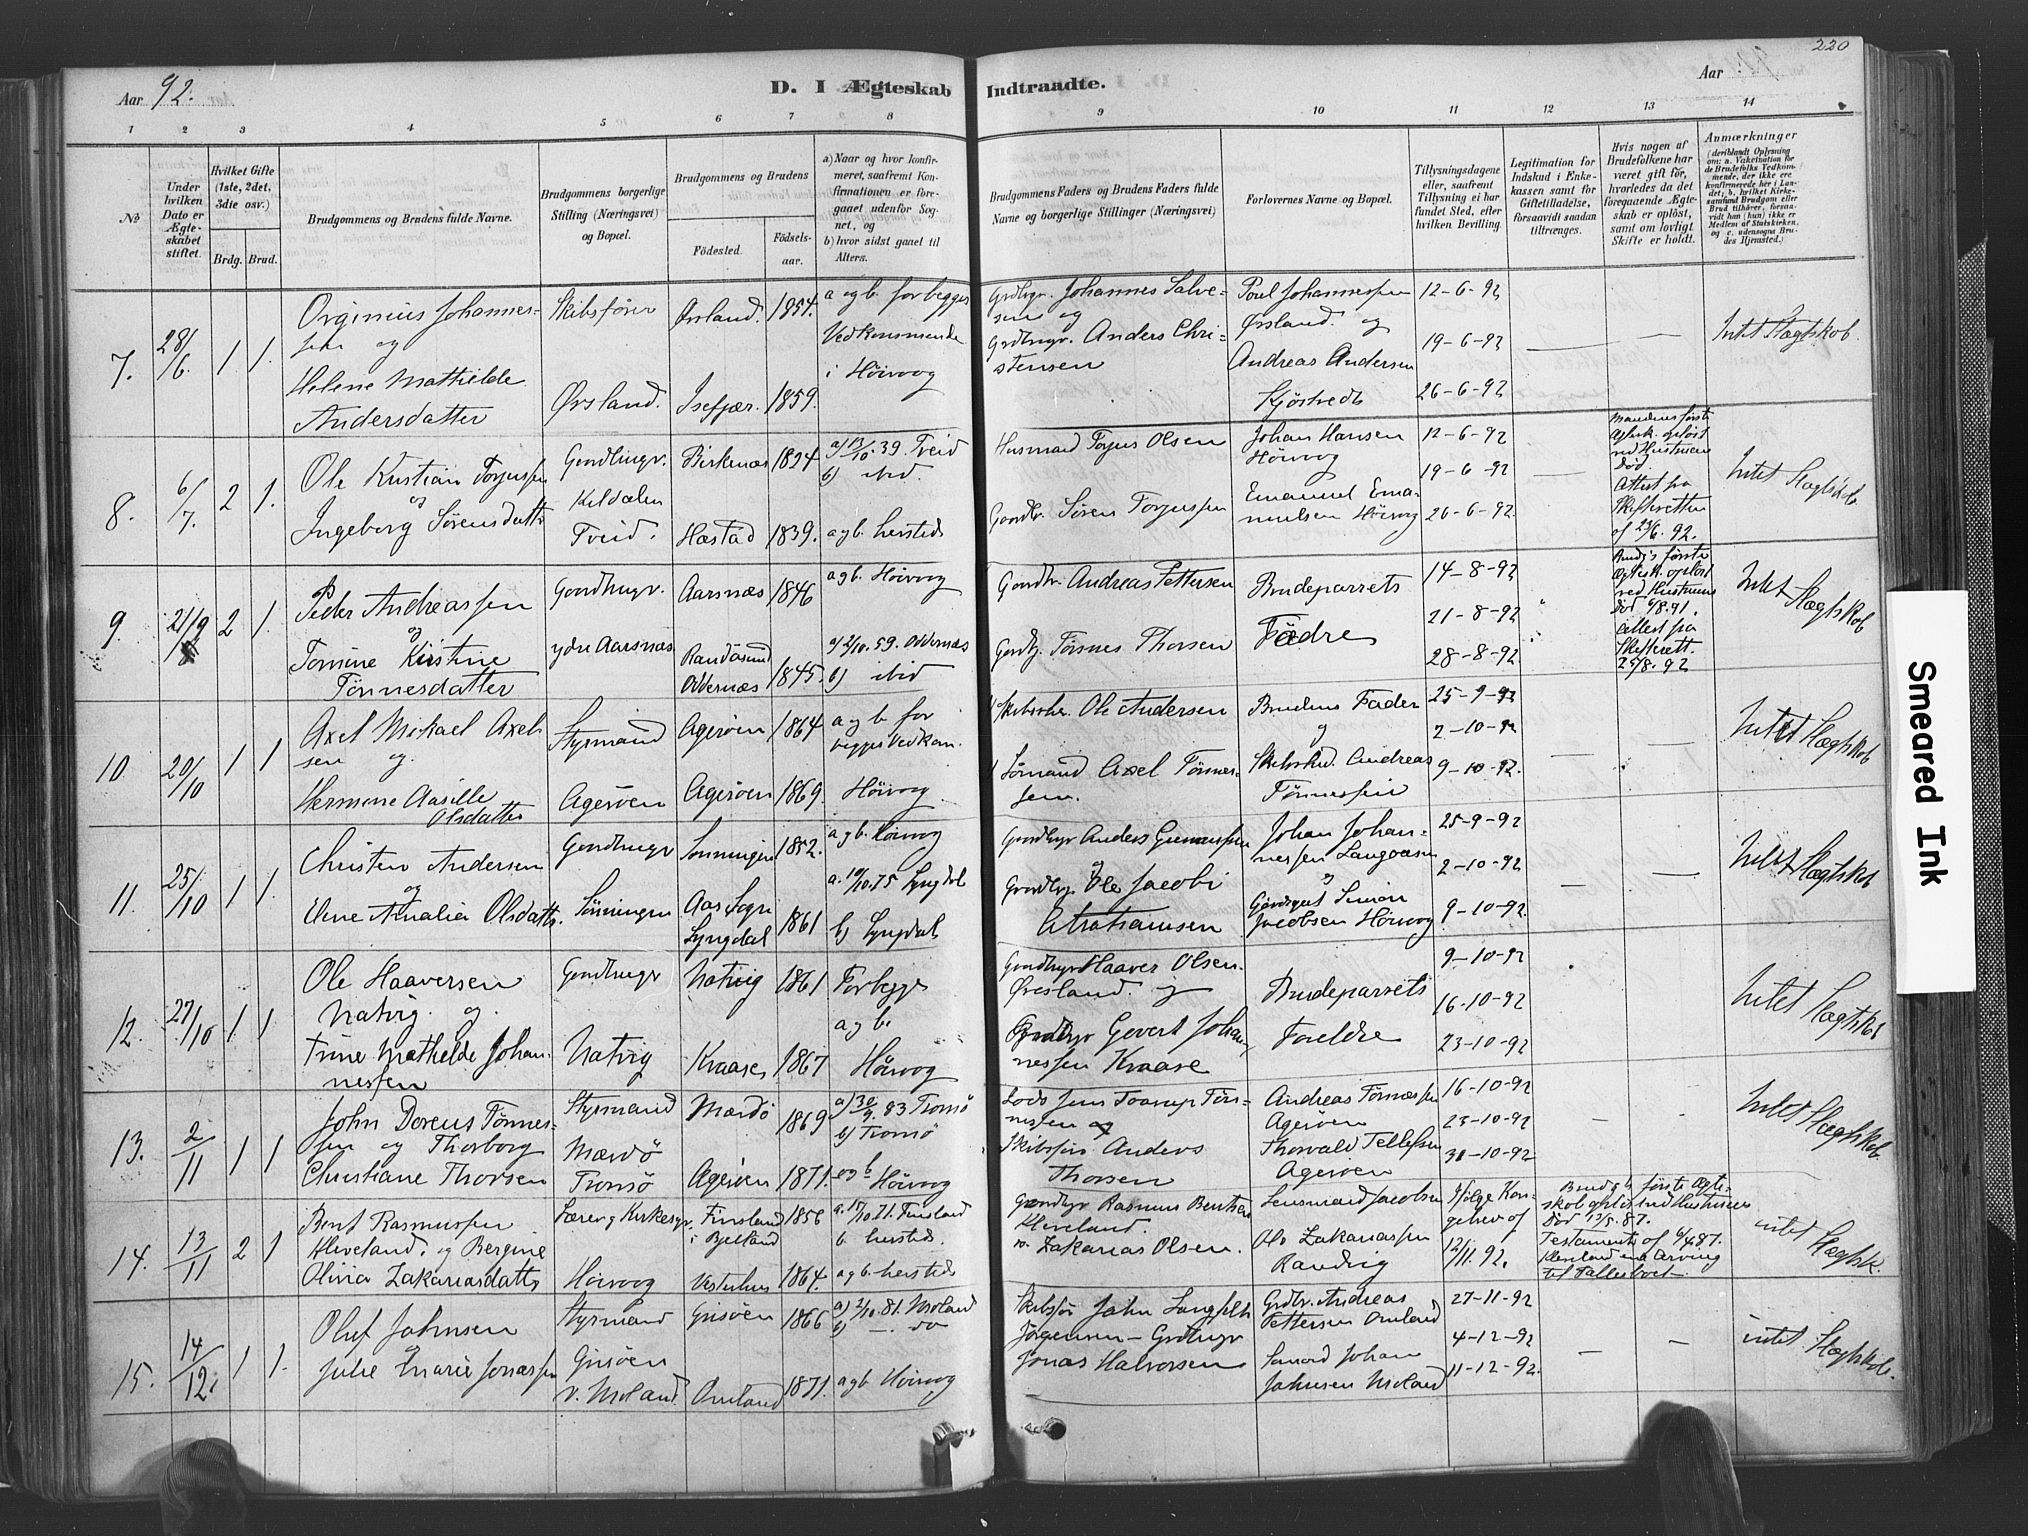 220
Aar 92.
D. I Ægteskab Indtraadte.
Aar
1 2 3 4 5 6 7 8 9 10 11 12 13 14
No
Under hvilken Dato er Ægteskabet stiftet.
Hvilket Gifte (1ste, 2det, 3die osv.)
Brdg. Brud.
Brudgommens og Brudens fulde Navne.
Brudgommens borgerlige Stilling (Næringsvei) og Bopæl.
Brudgommens og Brudens
Fødested.
Fødselsaar.
a) Naar og hvor konfirmeret, saafremt Konfirmationen er foregaaet udenfor Sognet, og
b) hvor sidst gaaet til Alters.
Brudgommens Faders og Brudens Faders fulde Navne og borgerlige Stillinger (Næringsvei)
Forlovernes Navne og Bopæl.
Tillysningsdagene eller, saafremt Tillysning ei har fundet Sted, efter hvilken Bevilling.
Legitimation for Indskud i Enkekassen samt for Giftetilladelse, forsaavidt saadan tiltrænges.
Hvis nogen af Brudefolkene har været gift før, hvorledes da det foregaaende Ægteskab er opløst, samt om lovligt Skifte er holdt.
Anmærkninger
(deriblandt Oplysning om: a. Vakcination for de Brudefolks Vedkommende, der ikke ere konfirmerede her i Landet; b. hvilket Kirkesamfund Brudgom eller Brud tilhører, forsaavidt han (hun) ikke er Medlem af Statskirken, og c. udensogns Brudes Hjemsted.)
7. 28/6. 1 1.
Orginius Johannessen og
Helene Mathilde
Andersdatter
Skibsfører
Ørsland.
Ørsland. 1854.
Isefjær. 1859.
a og b. for begges
Vedkommende
i Høivog
Grdbrgr. Johannes Salvesen og
Grdbrugr. Anders Christensen
Poul Johannessen
Ørsland. og
Andreas Andersen
Kjøstvedt
12-6-92
19-6-92
26-6-92
Intet Slægtskab.
8. 6/7. 2 1.
Ole Kristian Torjussen
og
Ingeborg Sørensdattr
Gaardbrugr.
Kildalen
Tveid.
Birkenæs 1824
Hæstad 1839.
a) 13/10. 39. Tveid
b) ibid.
a og b. hersteds
Husmand Torjus Olsen
Gaardbr. Søren Torjussen
Johan Hansen
Høivog
Emanuel Emanuelsen Høivog
12-6-92
19-6-92
26-6-92.
Mandens første
Ægtesk. opløst
ved Hustruens
Død.
Attest fra
Skifteretten
af 23/6. 92.
Intet Slægtskab
9. 21/9 2 1.
Peder Andreassen
og
Tomine Kirstine
Tønnesdatter
Gaardbrugr.
ydre Aarsnæs
Aarsnæs 1846
Randøsund
Oddernæs 1845.
a og b. Høivog
a) 2/10. 59. Oddernæs
b) ibid
Gaardbr. Andreas Pettersen
Gaardbr. Tønnes Thorsen
Brudeparrets
Fædre
14-8-92
21-8-92
28-8-92
Brudg.s første
Ægtesk. opløst
ved Hustruens
Død 6/8. 91.
Attest fra
Skifterett.
25/8. 92
Intet Slægtskab
10. 20/10 1 1
Axel Mikael Axelsen og
Hermine Aasille
Olsdatter
Styrmand
Agerøen
Agerøen 1864
Agerøen 1869.
a og b. for
begges Vedkom.
Høivog
Skibsthr. Ole Andersen
Sømand Axel Tønnessen.
Brudens Fader
og
Skibsthd. Andreas
Tønnessen
25-9-92
2-10-92
9-10-92.
Intet Slægtskab
11. 25/10 1 1.
Christen Andersen
og
Elene Amalia Olsdattr.
Gaardbrugr
Sønningen
Sønningen 1852.
Aas Sogn
Lyngdal 1861
a og b. Høivog
a. 10/10. 75 Lyngdal
b) Lyngdal
Gaardbrgr Anders Gunnarsen
og
Gaardbrgr. Ole Jacob
Abrahamsen
Johan Johannessen Langaasen
og
Gaardbrgr Simon
Jacobsen Høivog
25-9-92
2-10-92
9-10-92.
Intet Slægtskab
12. 27/10 1 1
Ole Haaversen
Natvig. og
Trine Mathilde Johannessen
Gaardbrugr
Natvig
Natvig 1861
Kraage 1867
For begge
a og b.
Høivog
Gaardbrgr Haaver Olsen.
Øresland. og
Grdbrgr Gevert Johannessen Kraage
Brudeparrets
Foreldre
9-10-92
16-10-92
23-10-92
Intet Slægtskab
13. 2/11 1 1
John Doreus Tønnessen og Thorborg
Christiane Thorsen
Styrmand
Mærdø
Tromsø
Mærdø 1869
Agerøen 1871.
a) 30/9. 83 Tromsø
b) Tromsø
a og b
Høivog
Lods Jens Taarup Tønnessen og
Skibsfør. Anders
Thorsen
Andreas Tønnessen
Agerøen
Thorvald Tellefsen
Agerøen
16-10-92
23-10-92
30-10-92
Intet Slægtskab.
14. 13/11 2 1
Bent Rasmussen
Kleveland. og Bergine
Olivia Zakariasdattr
Lærer og Kirkesgr.
Høivog
Finsland
i Bjelland 1856
Vesterhus 1864.
a. 15/10. 71. Finsland
b. hersteds.
a og b. hersteds
Gaardbrgr Rasmus Bentsen
Kleveland.
Zakarias Olsen.
Lensmand Jacobsen
Ole Zakariassen
Randvig
Ifølge Kongebrev af
12/11. 92.
Brudg.s første Ægteskab opløst ved Hustruens
Død 13/5. 87.
Testamente af 6/4 87.
til Fællesboet.
intet Slægtsk.
15. 14/12. 1 1.
Oluf Johnsen
og
Julie Marie Jonassen
Styrmand
Grisøen
v. Moland
Grisøen 1866
Omland 1871.
a) 2/10. 81. Moland
b) — do
a og b. Høivog
Skibsfør John Langfeldt
Jørgensen — Grdbrgr
Jonas Halvorsen
Grdbr. Andreas
Pettersen Omland
Sømand Johan
Johnsen Moland
27-11-92
4-12-92
11-12-92.
intet Slægtskab.
Smeared Ink